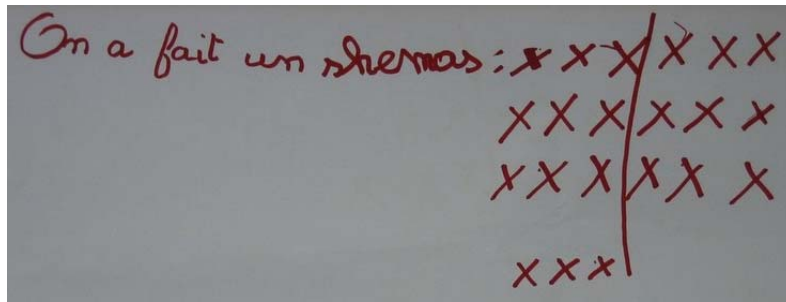 On a fait un shemas : x x x x x x
x x x x x x
x x x x x x
x x x